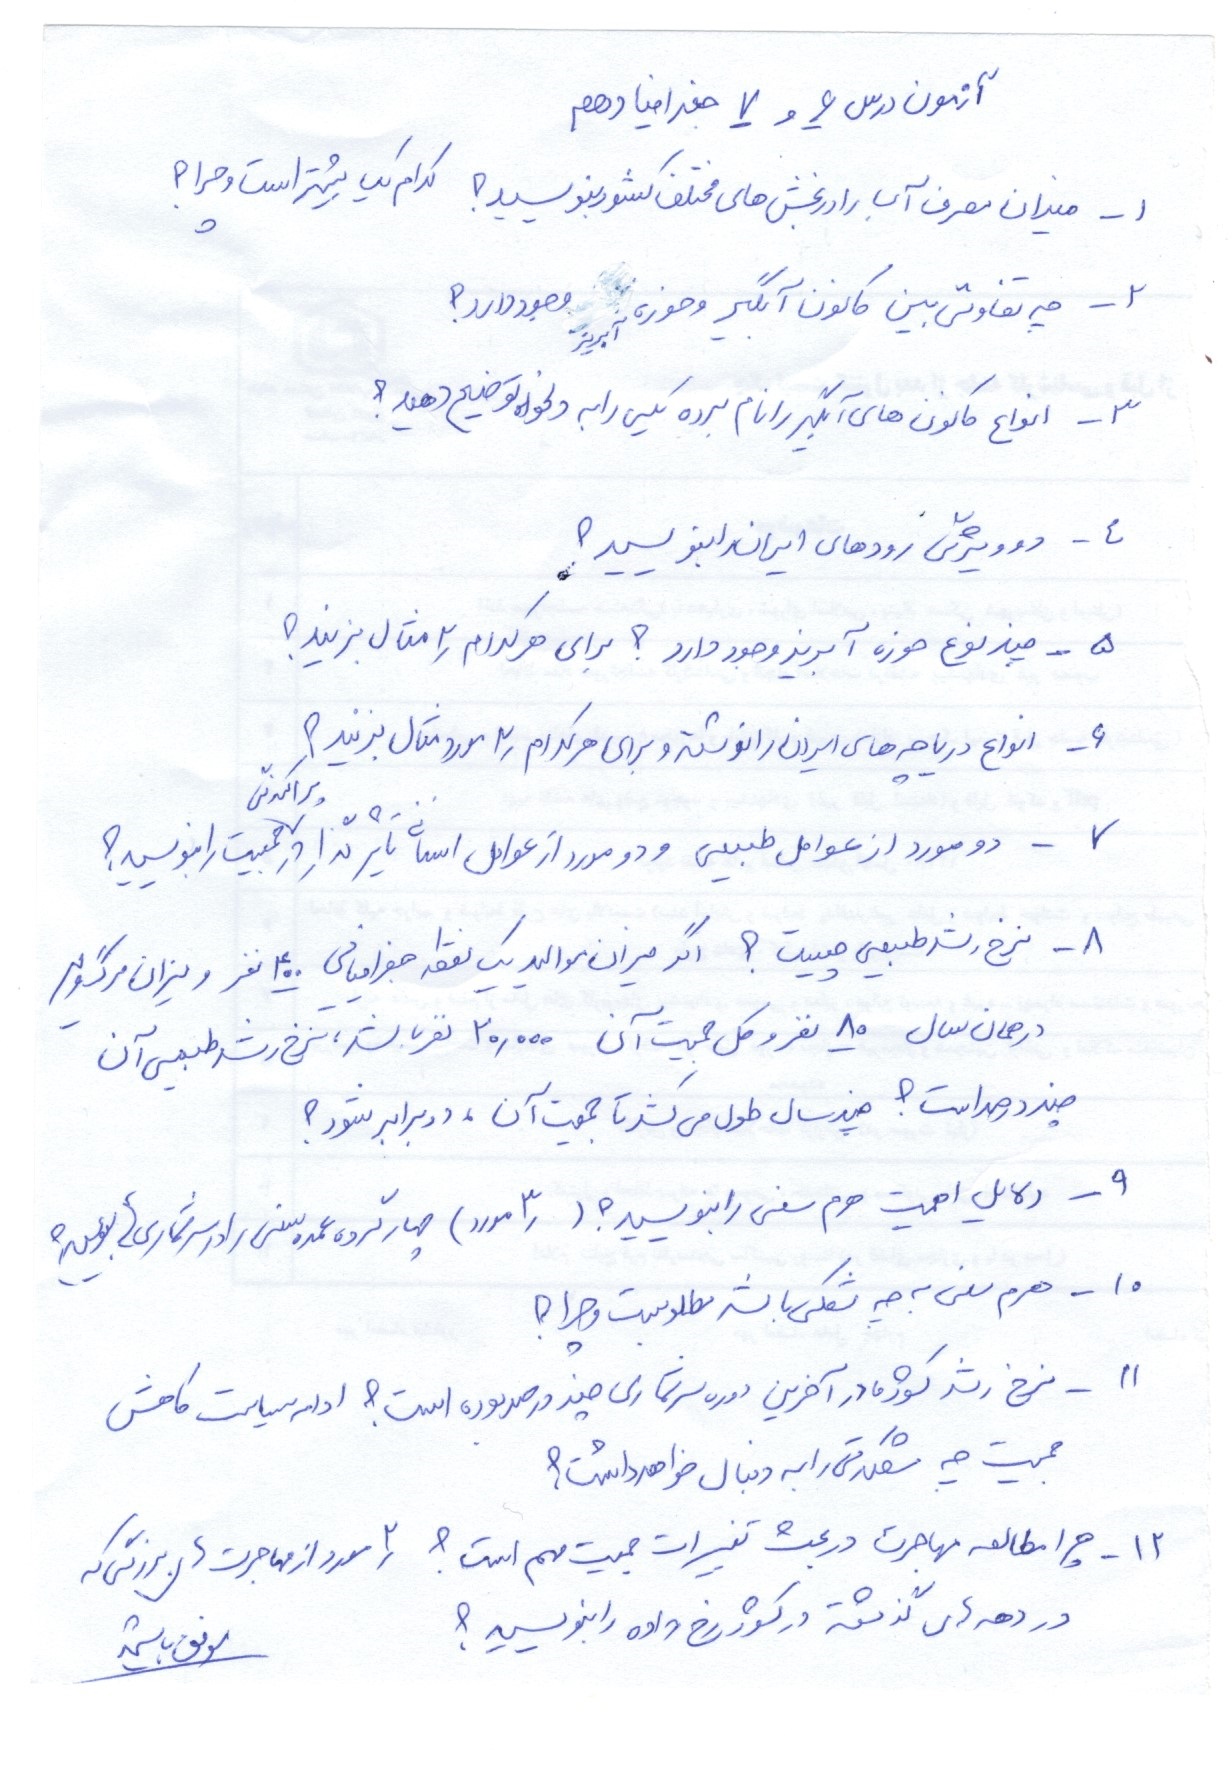 آزمون درس ۶ و ۷ جغرافیا دهم
۱- میزان مصرف آب را در بخش های مختلف کشور بنویسید؟ کدام یک بیشتر است و چرا؟
۲- چه تفاوتی بین کانون آبگیر و حوزه آبریز وجود دارد؟
۳- انواع کانون های آبگیر را نام برده یکی را به دلخواه توضیح دهید؟
۴- دو ویژگی رودهای ایران را بنویسید؟
۵- چند نوع حوزه آبریز وجود دارد؟ برای هرکدام ۲ مثال بزنید؟
۶- انواع دریاچه های ایران را نوشته و برای هرکدام ۲ مورد مثال بزنید؟
۷- دو مورد از عوامل طبیعی و دو مورد از عوامل انسانی تأثیرگذار در پراکندگی جمعیت را بنویسید؟
۸- نرخ رشد طبیعی چیست؟ اگر میزان موالید یک نقطه جغرافیایی ۴۰۰ نفر و میزان مرگ و میر
در همان سال ۸۰ نفر و کل جمعیت آن ۲۰٫۰۰۰ نفر باشد، نرخ رشد طبیعی آن
چند درصد است؟ چند سال طول می کشد تا جمعیت آن، دو برابر شود؟
۹- دلایل اهمیت هرم سنی را بنویسید؟ (۳ مورد) چهار گروه عمده سنی را در سرشماری ها بنویسید؟
۱۰- هرم سنی به چه شکلی باشد مطلوبست و چرا؟
۱۱- نرخ رشد کشور ما در آخرین دوره سرشماری چند درصد بوده است؟ ادامه سیاست کاهش
جمعیت چه مشکلاتی را به دنبال خواهد داشت؟
۱۲- چرا مطالعه مهاجرت در بحث تغییرات جمعیت مهم است؟ ۲ مورد از مهاجرت های بزرگی که
در دهه های گذشته در کشور رخ داده را بنویسید؟
موفق باشید